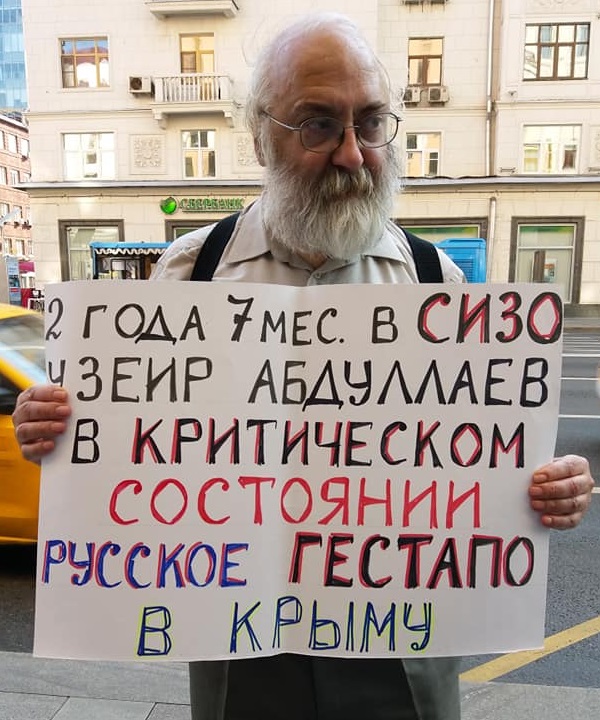 СБЕРБАНК
2 ГОДА 7 МЕС. В СИЗО
УЗЕИР АБДУЛЛАЕВ
В КРИТИЧЕСКОМ
СОСТОЯНИИ
РУССКОЕ ГЕСТАПО
В КРЫМУ